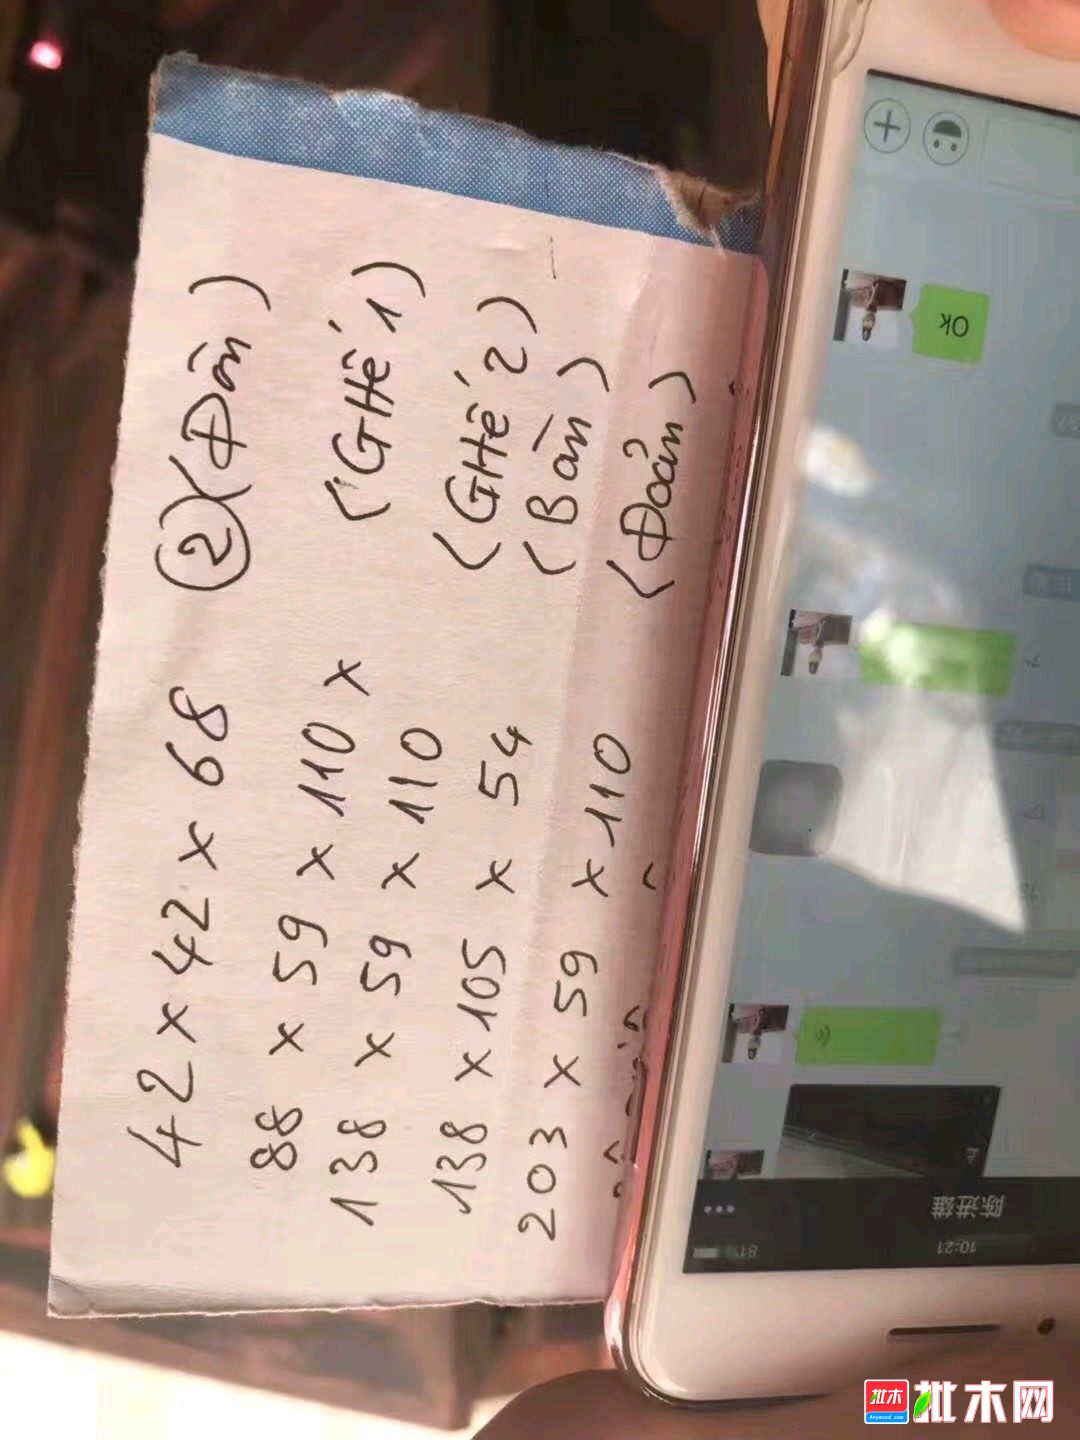 42 x 42 x 68 (2) (Đôn)
88 x 59 x 110 x (GHế 1)
138 x 59 x 110 (GHế 2)
138 x 105 x 54 (Bàn)
203 x 59 x 110 (Đoản)
Ok
陈进雄
10:21
81%
批木
Anywood.com
批木网